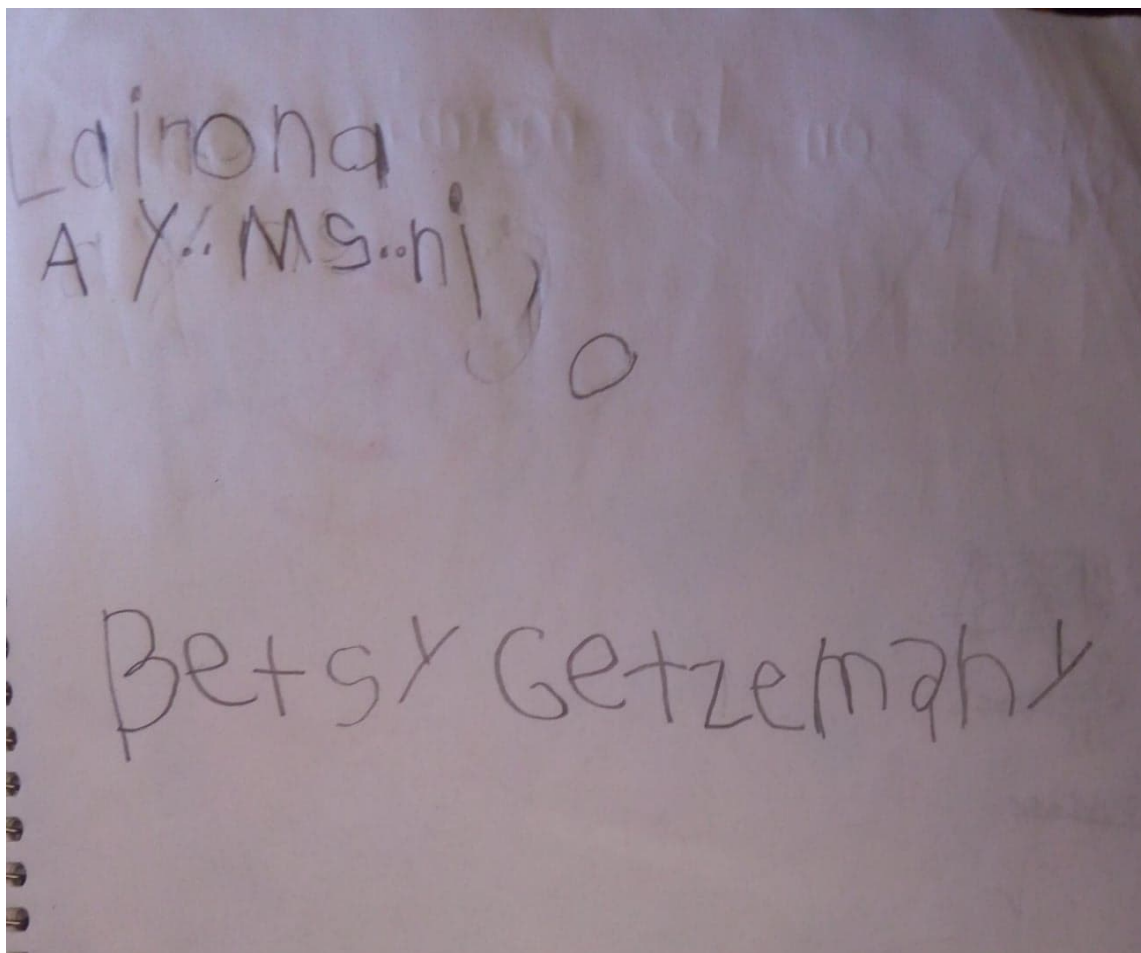 Lairona
A Y.. MS..nijo
Betsy Getzemany